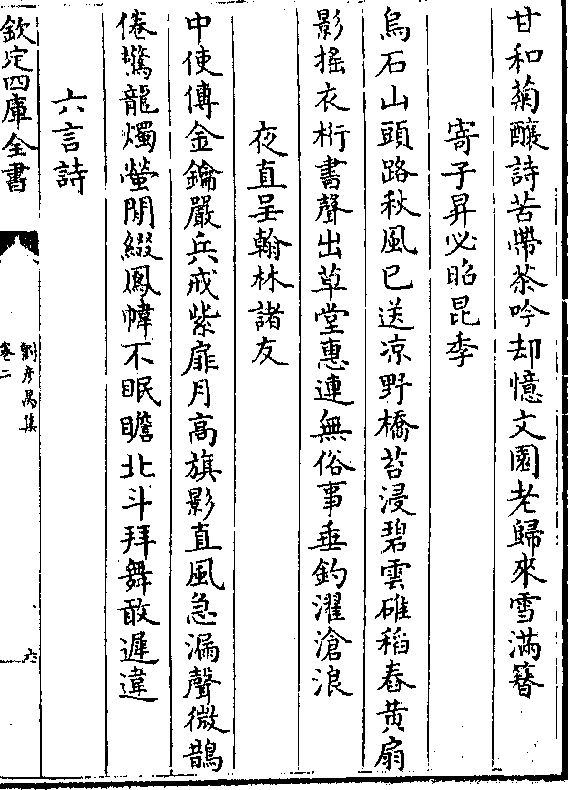 甘和菊釀詩苦帶茶吟却憶文園老歸來雪滿簪
寄子昇必昭昆季
烏石山頭路秋風已送凉野橋苔浸碧雲碓稻舂黄扇
影摇衣桁書聲出草堂惠連無俗事垂釣濯滄浪
夜直呈翰林諸友
中使傳金鑰嚴兵戒紫扉月高旗影直風急漏聲微鵲
倦驚龍燭螢閒綴鳳幃不眠瞻北斗拜舞敢遲違
六言詩
欽定四庫全書
劉彦昺集
卷二
六